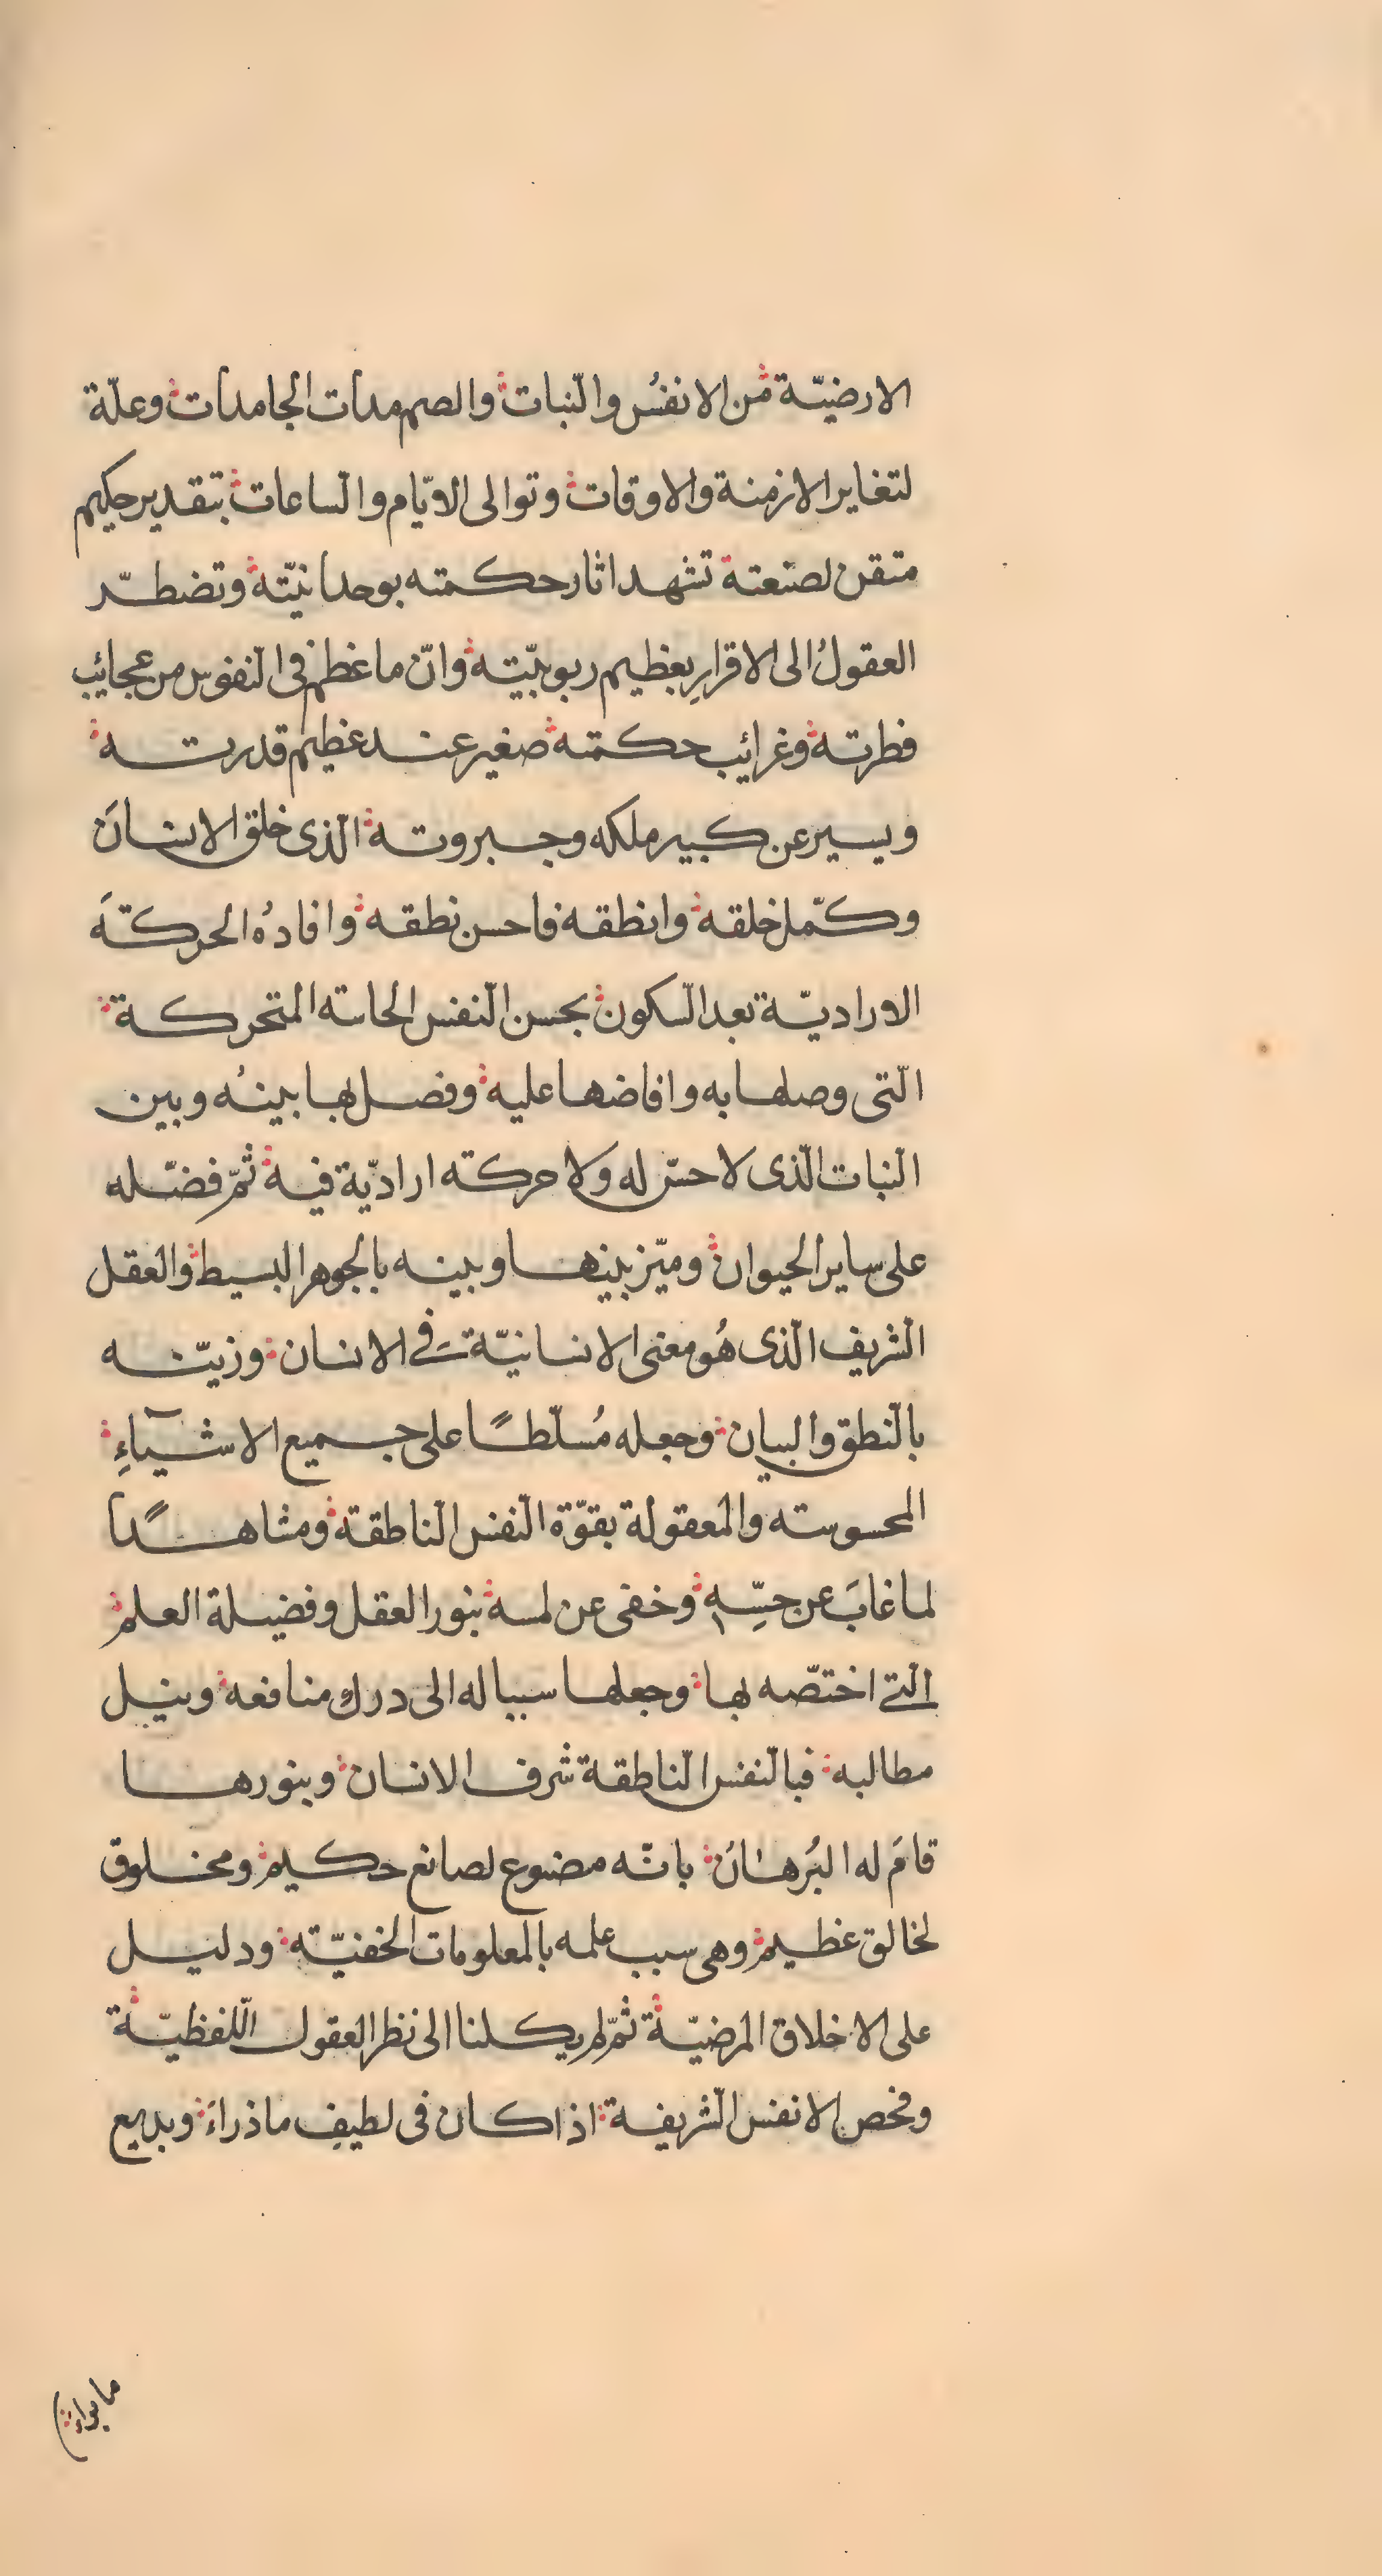 الارضيّة من الانفُس والنّبات والصم مدات الجامدات وعلّة
لتغاير الازمنة والاوقات وتوالى الايّام والسّاعات بتقدير حكيم
متقن لصنعته تشهد اثار حكمته بوحدانيّته وتضطـرّ
العقولُ الى الاقرارِ بعظيم ربوبيّته وانّ ما عظم فى النّفوس من عجائب
فطرته وغرائب حكمته صغير عند عظيم قدرته
ويسير عن كبير ملكه وجبروته الّذى خلق الانسانَ
وكمّل خلقه وانطقه فاحسن نطقه وافادهُ الحركةَ
الاراديّة بعد السّكون بحسن النّفس الحاسّه المتحركة
الّتى وصلها به وافاضها عليه وفصل بها بينهُ وبين
النّبات الّذى لا حسّ له ولا حركته اراديّة فيه ثمّ فضّله
على ساير الحيوان وميّز بينها وبينه بالجوهر البسيط والعقل
الشّريف الّذى هُو معنى الانسانيّة فى الانسان وزيّنه
بالنّطق والبيان وجعله مُسلّطًا على جميع الاشيآءِ
المحسوسته والمعقولة بقوّة النّفس النّاطقة ومشاهدًا
لما غابَ عن حِسّهِ وخفى عن لمسه بنور العقل وفضيلة العلم
الّتى اختصّه بها وجعلها سببا له الى درك منافعه ونيل
مطالبه فبالنّفس النّاطقة شرف الانسان وبنورها
قامَ له البُرهانُ بانّه مصنوع لصانع حكيم ومخلوق
لخالق عظيم وهى سبب علمه بالمعلومات الخفيّته ودليل
على الاخلاق المرضيّة ثمّ لم يكلنا الى نظر العقول اللّفظيّة
وفحص الانفس الشّريفة اذا كان فى لطيفِ ما ذراءَ وبديع
ما براءَ